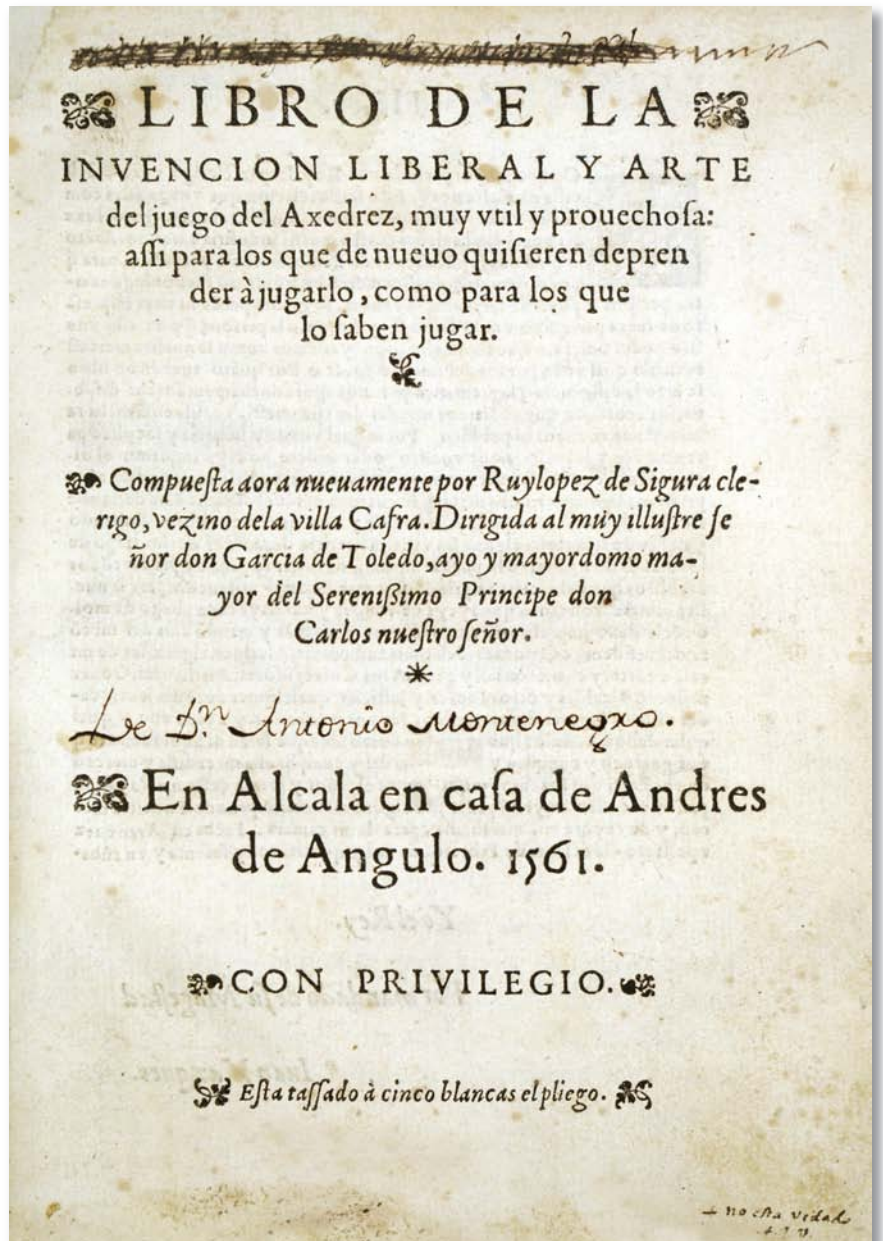 LIBRO DE LA
INVENCION LIBERAL Y ARTE
del juego del Axedrez, muy vtil y prouechoſa:
aſſi para los que de nueuo quiſieren depren
der à jugarlo, como para los que
lo ſaben jugar.
Compueſta aora nueuamente por Ruylopez de Sigura cle-
rigo, vezino dela villa Cafra. Dirigida al muy illuſtre ſe
ñor don Garcia de Toledo, ayo y mayordomo ma-
yor del Sereniſsimo Principe don
Carlos nueſtro ſeñor.
*
De Dn Antonio Montenegro.
En Alcala en caſa de Andres
de Angulo. 1561.
CON PRIVILEGIO.
Eſta taſſado à cinco blancas el pliego.
no esta